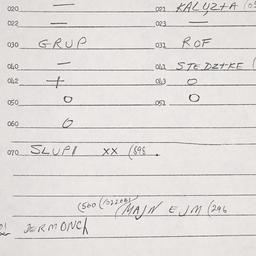 020 — 021 KALUZTA (0
022 — 023 —
030 GRUP 031 ROF
040 — 041 STEDZTKE (
042 + 043 O
050 O 051 O
060 O
070 SLUPI XX (598 .
(500 (
(MAJN EJM (246
JERMONCH